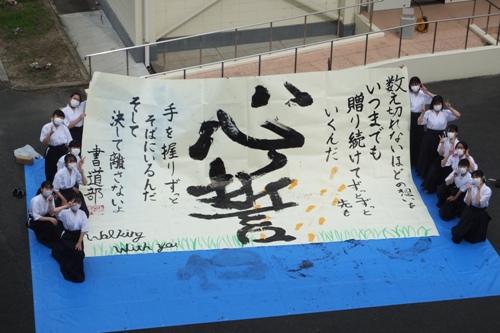 数え切れないほどの想いを
いつまでも
贈り続けてずっと
いくんだ 先も
心
手を握りずっと
そばにいるんだ
そして
決して離さないよ
書道部
Walking
with you